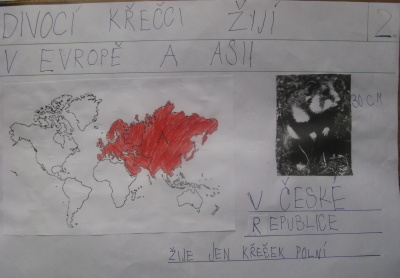 DIVOCÍ KŘEČCI ŽIJÍ
2.
V EVROPĚ A ASII
30 CM
V ČESKÉ
REPUBLICE
ŽIJE JEN KŘEČEK POLNÍ